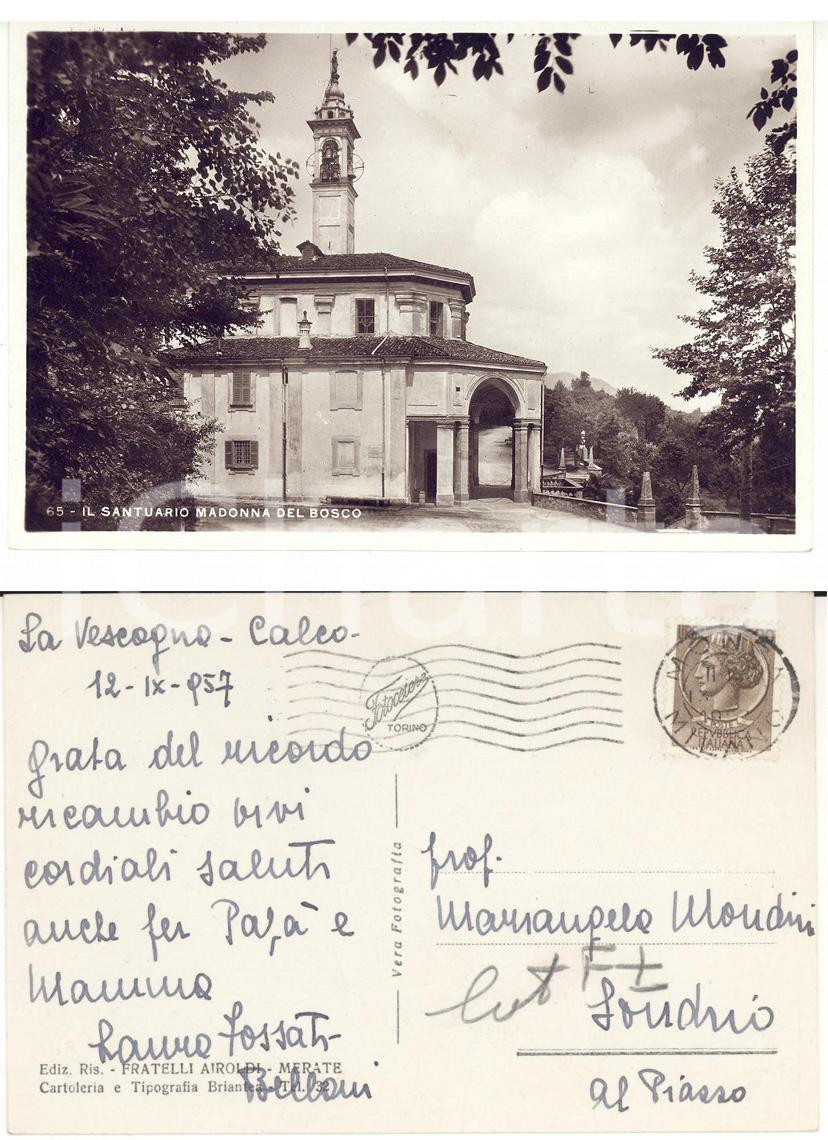 65 - IL SANTUARIO MADONNA DEL BOSCO
iCharta
La Vescogna - Calco -
12-IX-957
grata del ricordo
ricambio vivi
cordiali saluti
anche per Papà e
Mamma
Laura Fossati
Belloni
Ediz. Ris. - FRATELLI AIROLDI - MERATE
Cartoleria e Tipografia Briantea - Tel. 32
Vera Fotografia
Fotocelere
TORINO
POSTE
REPVBBLICA
ITALIANA
prof.
Mariangela Mondini
Sondrio
al Piazzo